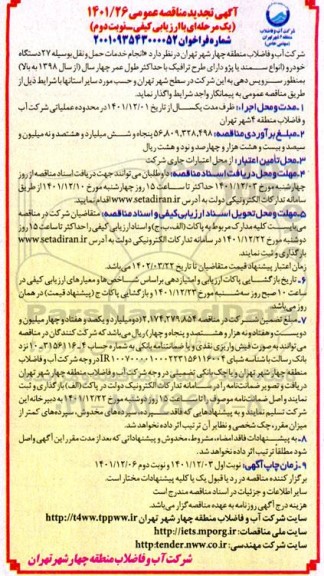 آگهی تجدید مناقصه عمومی ۱۴۰۱/۲۶
(یک مرحله‌ای با ارزیابی کیفی-نوبت دوم)
شماره فراخوان ۲۰۰۱۰۹۳۵۴۳۰۰۰۰۵۲
شرکت آب و فاضلاب
منطقه ۴ شهر تهران
(سهامی خاص)
شرکت آب و فاضلاب منطقه چهار شهر تهران در نظر دارد «انجام خدمات حمل و نقل بوسیله ۲۷ دستگاه
خودرو (انواع سمند یا پژو دارای طرح ترافیک با حداکثر طول عمر چهار سال (از سال ۱۳۹۸ به بالا)
بمنظور سرویس دهی به این شرکت در سطح شهر تهران و حسب مورد سایر استانها با شرایط ذیل از
طریق مناقصه عمومی به پیمانکار واجد شرایط واگذار نماید.
۱-مدت و محل اجرا: ظرف مدت یکسال از تاریخ ۱۴۰۱/۱۲/۰۱ در محدوده عملیاتی شرکت آب
و فاضلاب ۴ شهر تهران
۲-مبلغ برآوردی مناقصه: ۵۶,۸۰۹,۳۲۸,۴۹۸ پنجاه و شش میلیارد و هشتصد و نه میلیون و
سیصد و بیست و هشت هزار و چهارصد و نود و هشت ریال
۳-محل تأمین اعتبار: از محل اعتبارات جاری شرکت
۴-مهلت و محل دریافت اسناد مناقصه: داوطلبان می توانند جهت دریافت اسناد مناقصه از روز
چهارشنبه مورخ ۱۴۰۱/۱۲/۰۳ حداکثر تا ساعت ۱۵ روز چهارشنبه مورخ ۱۴۰۱/۱۲/۱۰ از طریق
سامانه تدارکات الکترونیکی دولت به آدرس www.setadiran.ir اقدام نمایند.
۵-مهلت و محل تحویل اسناد ارزیابی کیفی و اسناد مناقصه: متقاضیان شرکت در مناقصه
می‌بایست کلیه مدارک مربوط به پاکات (الف،ب،ج) و اسناد ارزیابی کیفی را حداکثر تا ساعت ۱۵ روز
دوشنبه مورخ ۱۴۰۱/۱۲/۲۲ در سامانه تدارکات الکترونیکی دولت به آدرس www.setadiran.ir
بارگذاری و ثبت نمایند.
زمان اعتبار پیشنهاد قیمت متقاضیان تا تاریخ ۱۴۰۲/۰۳/۲۲ می‌باشد.
۶-تاریخ بازگشایی پاکات ارزیابی و امتیازدهی براساس شاخص‌ها و معیارهای ارزیابی کیفی در
ساعت ۱۰ صبح روز سه‌شنبه مورخ ۱۴۰۱/۱۲/۲۳ و بازگشایی پاکات ج (پیشنهاد قیمت) در همان
روز می‌باشد.
۷-مبلغ تضمین شرکت در مناقصه ۲,۱۷۴,۲۷۹,۸۵۴ (دو میلیارد و یکصد و هفتاد و چهار میلیون و
دویست و هفتاد و نه هزار و هشتصد و پنجاه و چهار) ریال می‌باشد که شرکت کنندگان در مناقصه
می توانند به صورت فیش واریزی نقدی و یا ضمانتنامه بانکی به شماره حساب
بانک رسالت با شناسه شبای در وجه شرکت آب و فاضلاب
منطقه چهار شهر تهران و یا چک بانکی تضمینی در وجه شرکت آب و فاضلاب منطقه چهار شهر تهران
دریافت و تصویر ضمانتنامه را در سامانه تدارکات الکترونیک دولت در پاکات (الف) بارگذاری و ثبت
نمایند و اصل ضمانتنامه موصوف را تا ساعت ۱۵ روز دوشنبه مورخ ۱۴۰۱/۱۲/۲۲ به دبیرخانه این
شرکت تسلیم نمایند و به پیشنهادهایی که فاقد سپرده، سپرده‌های مخدوش، سپرده‌های کمتر از
میزان مقرر، چک شخصی و نظایر آن ترتیب اثر داده نخواهد شد.
۸-به پیشنهادات فاقد امضاء، مشروط، مخدوش و پیشنهاداتی که بعد از مدت مقرر این آگهی واصل
شود مطلقا ترتیب اثر داده نخواهد شد.
۹-زمان چاپ آگهی: نوبت اول ۱۴۰۱/۱۲/۰۳ و نوبت دوم ۱۴۰۱/۱۲/۰۶
برگزار کننده مناقصه در رد یک یا کلیه پیشنهادات مختار است.
سایر اطلاعات و جزئیات در اسناد مناقصه مندرج است
هزینه درج آگهی روزنامه به عهده مناقصه گزار می‌باشد.
سایت شرکت آب و فاضلاب منطقه چهار شهر تهران http://t4ww.tppww.ir
سایت ملی مناقصات: http://iets.mporg.ir
سایت شرکت مهندسی: http:tender.nww.co.ir
شرکت آب و فاضلاب منطقه چهار شهر تهران